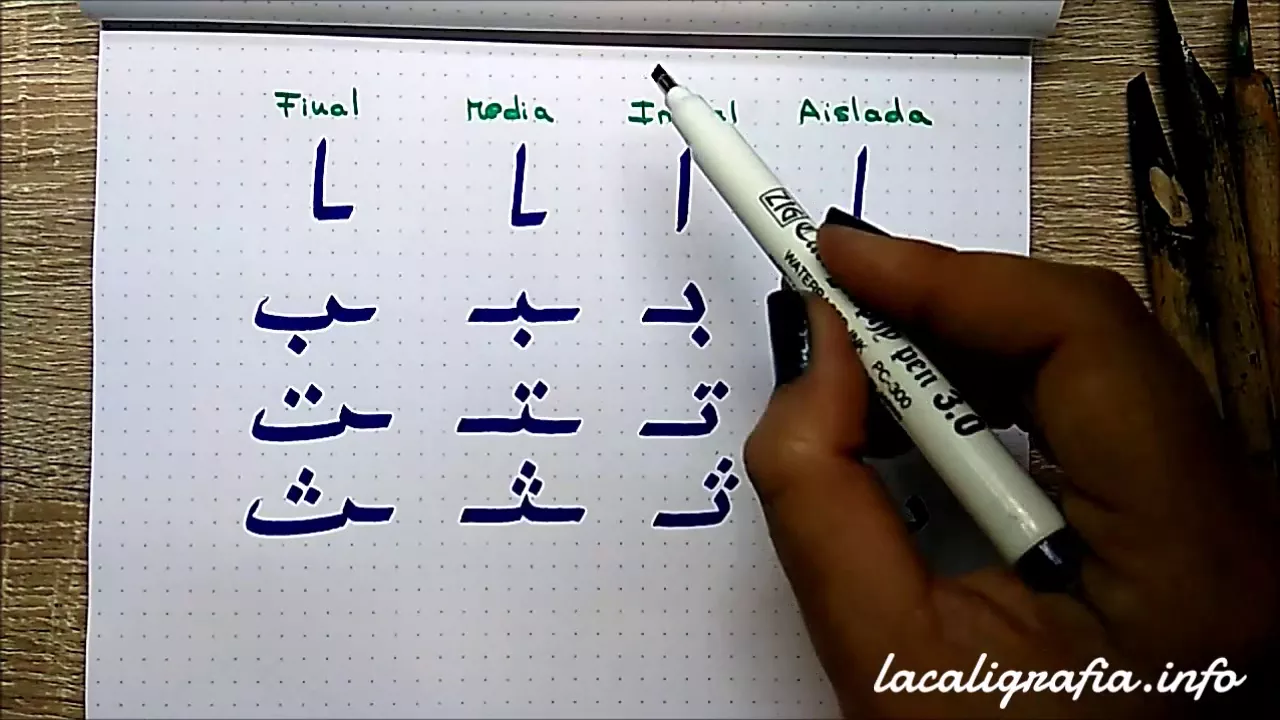 Final Media Inicial Aislada
ـا ـا ا ا
ـب ـبـ بـ
ـت ـتـ تـ
ـث ـثـ ثـ
ZIG
WATERB INK PC-300
pen 3.0
lacaligrafia.info